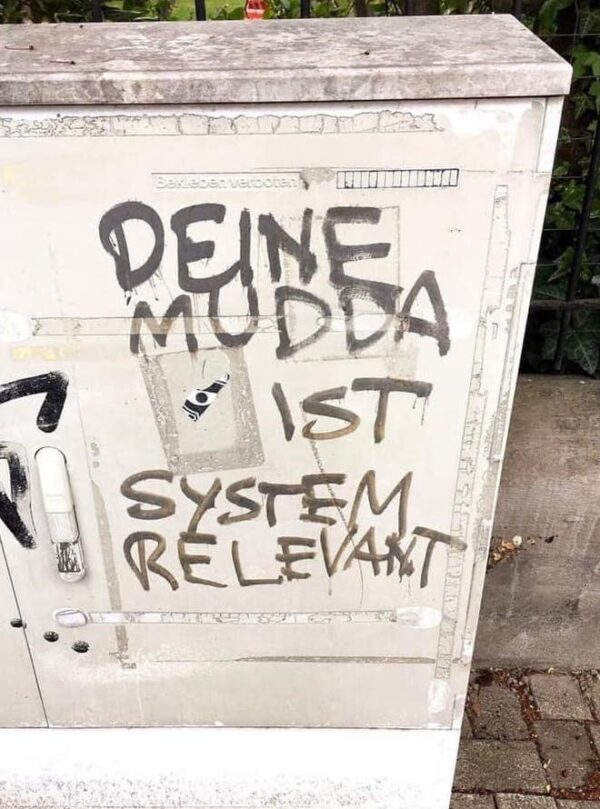 Bekleben verboten
DEINE
MUDDA
IST
SYSTEM
RELEVANT